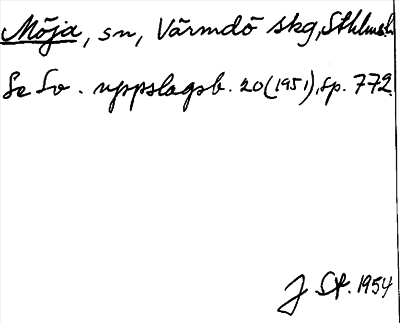 Möja, sn, Värmdö skg, Sthlms l.
Se Sv. uppslagsb. 20 (1951), sp. 772.
J St. 1954